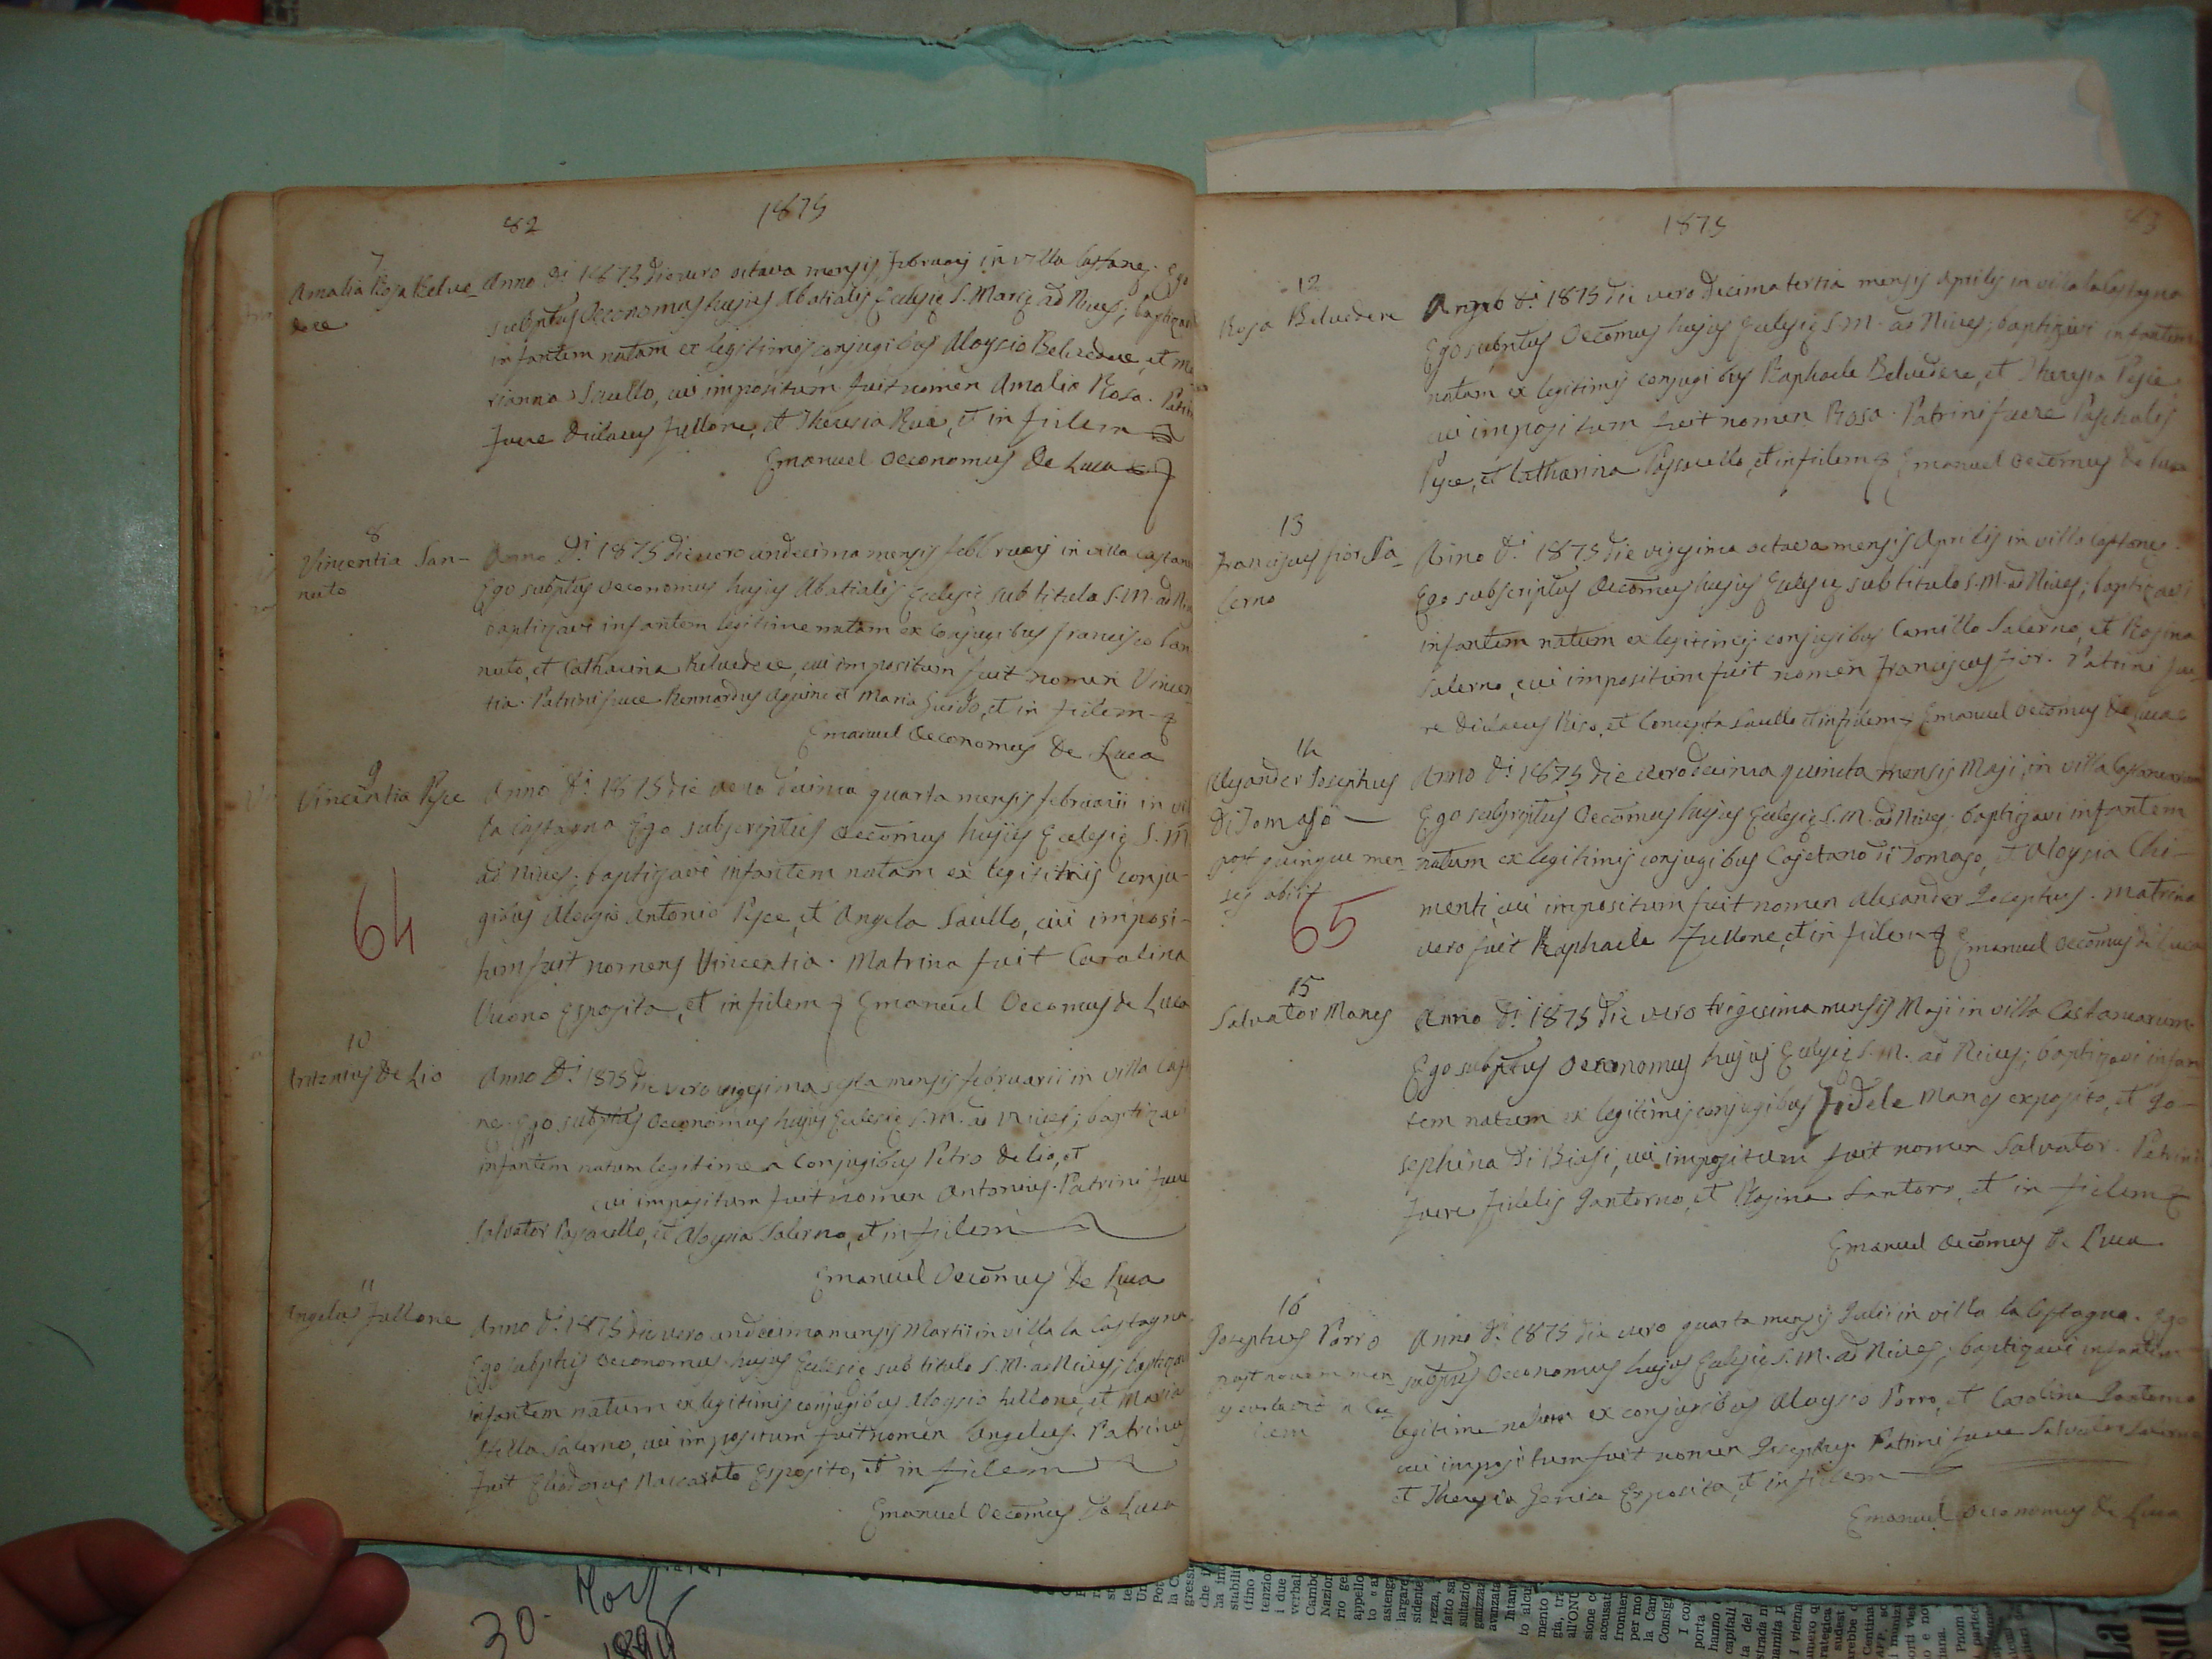 82
1875
7
Amalia Rosa Belve-
dere
Anno Di 1875 die vero octava mensis februarj in villa Castaneę. Ego
subptus Oeconomus hujus Abatialis Eclesię S. Marię ad Nives; baptizavi
infantem natam ex legitimis conjugibus Aloysio Belvedere, et Ma
rianna Saullo, cui impositum fuit nomen Amalia Rosa. Patrini
fuere Didacus Fullone, et Theresia Rue, et in fidem
Emanuel Oeconomus De Luca
8
Vincentia San-
nuto
Anno Di 1875 die vero undecima mensis februarj in villa Castan
Ego subptus Oeconomus hujus Abatialis Eclesię sub titulo S. M. ad Ni
baptizavi infantem legitime natam ex conjugibus Francisco San
nuto, et Catharina Belvedere, cui impositum fuit nomen Vincen
tia. Patrini fuere Bennardus Aquino et Maria Guido, et in fidem
Emanuel Oeconomus De Luca
9
Vincentia Pesce
64
Anno Di 1875 die vero decima quarta mensis februarii in vil
la Castagna Ego subscriptus Oecomus hujus Eclesię S. M
ad Nives; baptizavi infantem natam ex legititmis conju-
gibus Aloysio Antonio Pesce, et Angela Saullo, cui imposi-
tum fuit nomens Vincentia. Matrina fuit Carolina
Vuono Esposita, et in fidem Emanuel Oecomus de Luca
10
Antonius De Lio
Anno Di 1875 die vero vigesima sexta mensis februarii in villa Cast
nę. Ego subptus Oeconomus hujus Eclesię S. M. ad Nives; baptizavi
infantem natum legitime a Conjugibus Petro de lio, et
cui impositum fuit nomen Antonius. Patrini fuere
Salvator Passarello, et Aloysia Salerno, et in fidem
Emanuel Oecomus De Luca
11
Angelus Fullone
Anno Di 1875 die vero undecima mensis Martii in villa la Castagna
Ego subptus Oeconomus hujus Eclesię sub titulo S. M. ad Nives; baptizavi
infantem natum ex legitimis conjugibus Aloysio fullone, et Maria
Stella Salerno, cui impositum fuit nomen Angelus. Patrinus
fuit Eliodorus Naccarato Esposito, et in fidem
Emanuel Oecomus De Luca
1875
83
12
Rosa Belvedere
Anno Di 1875 die vero decimatertia mensis Aprilis in villa la Castagna
Ego subptus Oecomus hujus Eclesię S. M. ad Nives; baptizavi infantem
natam ex legitimis conjugibus Raphaele Belvedere, et Theresia Pesce
cui impositum fuit nomen Rosa. Patrini fuere Paschalis
Pesce, et Catharina Passarello, et in fidem Emanuel Oecomus De Luca
13
Franciscus fior Sa-
lerno
Anno Di 1875 die vigesima octava mensis Aprilis in villa Castaneę.
Ego subscriptus Oecomus hujus Eclesię sub titulo S. M. ad Nives; baptizavi
infantem natum ex legitimis conjugibus Camillo Salerno, et Rosina
Salerno, cui impositum fuit nomen Franciscus fior. Patrini fue-
re Didacus Riso, et Concepta Saullo et in fidem Emanuel Oecomus De Luca
14
Alexander Josephus
Di Tomaso
post quinque men-
ses obiit
65
Anno Di 1875 die vero decima quincta mensis Maji, in villa Castanearum
Ego subscriptus Oecomus hujus Eclesię S. M. ad Nives; baptizavi infantem
natum ex legitimis conjugibus Cajetano di Tomaso, et Aloysia Chi-
menti, cui impositum fuit nomen Alexander Josephus. Matrina
vero fuit Raphaela Fullone, et in fidem Emanuel Oecomus de Luca
15
Salvator Manes
Anno Di 1875 die vero trigesima mensis Maji in villa Castanearum.
Ego subptus Oeconomus hujus Eclesię S. M. ad Nives; baptizavi infan-
tem natum ex legitimis conjugibus Fidele Manes exposito, et Jo-
sephina Di Biasi, cui impositum fuit nomen Salvator. Patrini
fuere Fidelis Janterno, et Rosina Santoro, et in fidem
Emanuel Oecomus De Luca
16
Josephus Porro
post novem men-
ses evolavit in Cae-
lum
Anno Di 1875 die vero quarta mensis Julii in villa la Castagna. Ego
subptus Oeconomus hujus Eclesię S. M. ad Nives; baptizavi infantem
legitime natum ex conjugibus Aloysio Porro, et Carolina Janterno
cui impositum fuit nomen Josephus. Patrini fuere Salvator Salerno
et Theresia Jenia Exposita, et in fidem
Emanuel Oeconomus De Luca
30